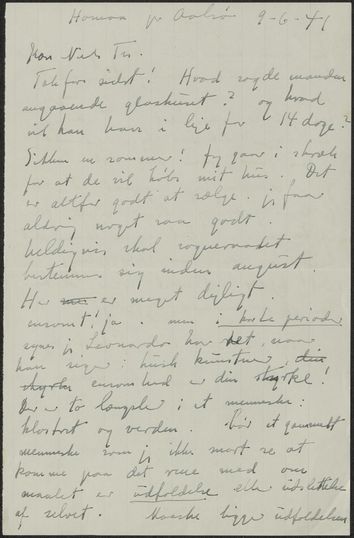 Homaa pr Aalsø 9-6-41
Kære Niels Th.
Tak for sidst! Hvad sagde manden
angaaende glashuset? og hvad
vil han have i leje for 14 dage?
Sikken en sommer! Jeg gaar i skræk
for at de vil købe mit hus. Det
er altfor godt at sælge. jeg faar
aldrig noget saa godt.
heldigvis skal sogneraadet
bestemme sig inden august.
Her er meget dejligt.
ensomt! ja. men i korte perioder
synes jeg Leonardo har ret, naar
han siger: husk kunstner, din
styrke ensomhed er din styrke!
Der er to længsler i et menneske:
klostret og verden. for et
menneske som jeg ikke mort se at
komme paa det rene med om
maalet er udfoldelse eller udslettelse
af selvet. Maaske ligger udfoldelsen